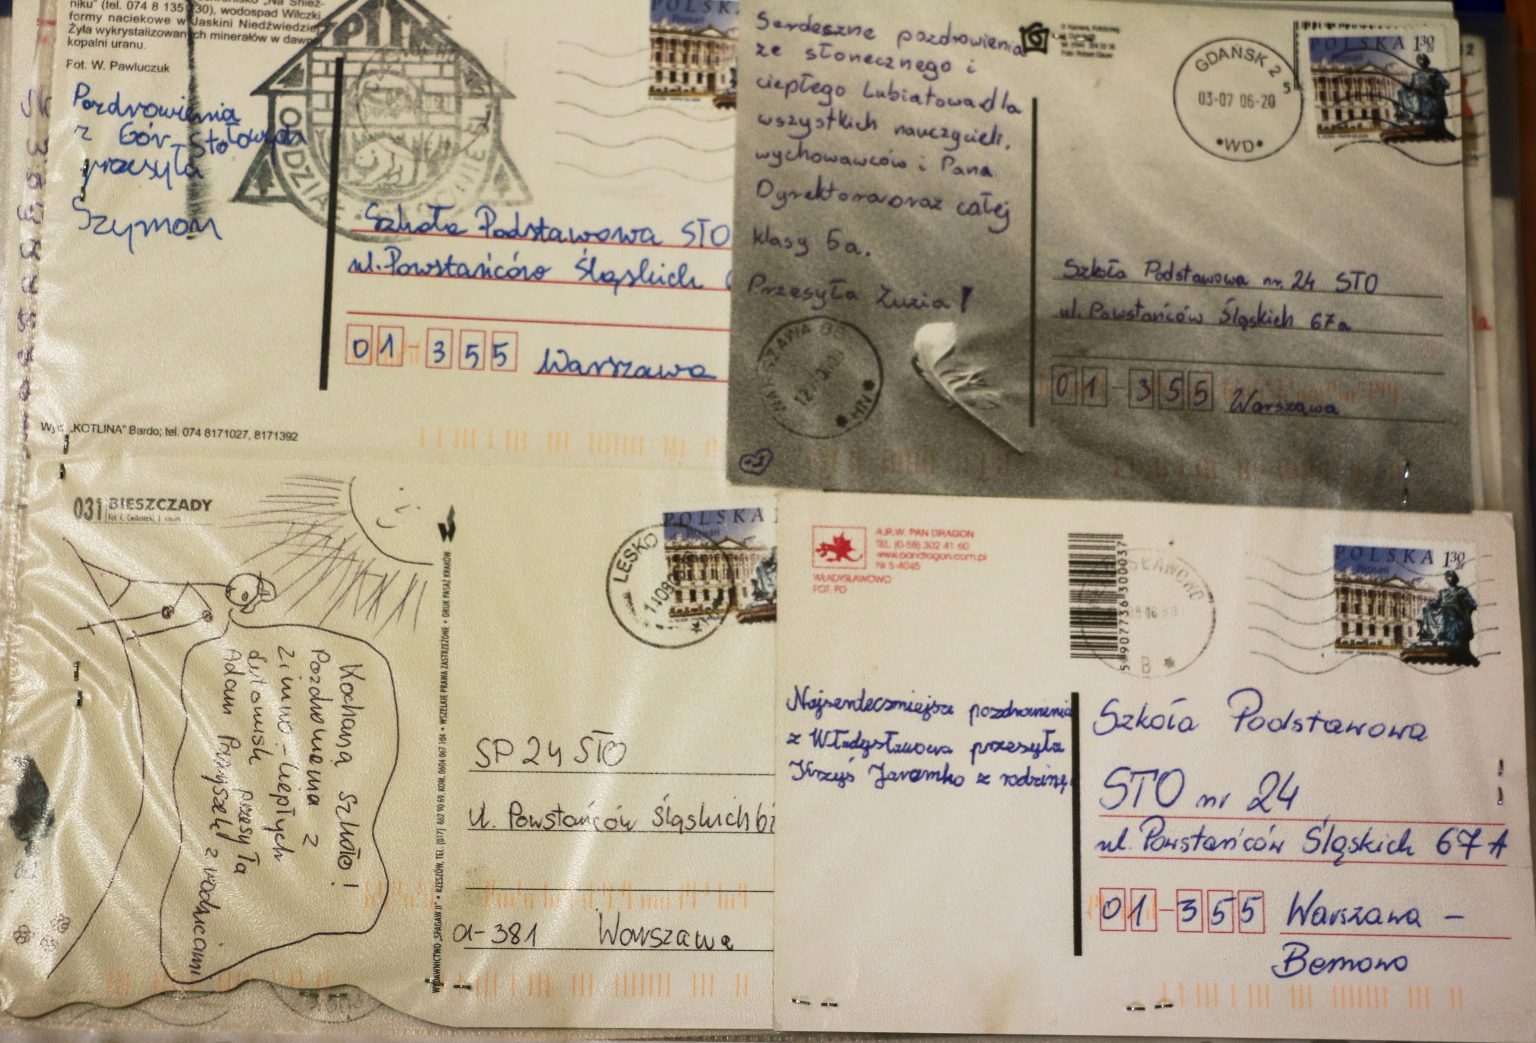 niku" (tel. 074 8 135
30), wodospad Wilczki
formy naciekowe w Jaskini Niedźwiedzie
Żyła wykrystalizowanych minerałów w dawn
kopalni uranu.
Fot. W. Pawluczuk
Pozdrowienia
z Gór Stołowych
przesyła
Szymon
PTTK
ODDZIAŁ
Szkoła Podstawowa STO
ul. Powstańców Śląskich 6
01-355 Warszawa
"KOTLINA" Bardo; tel. 074 8171027, 8171392
Serdeczne pozdrowienia
ze słonecznego i
ciepłego Lubiatowa dla
wszystkich nauczycieli,
wychowawców i Pana
Dyrektora oraz całej
klasy 5a.
Przesyła Zuzia!
GDAŃSK 2
5
03-07 06-20
*WD*
POLSKA 1,30
WARSZAWA 86
*HN*
Szkoła Podstawowa nr. 24 STO
ul. Powstańców Śląskich 67a
01-355 Warszawa
031 BIESZCZADY
Kochana Szkoło!
Pozdrowienia z
zimno-ciepłych
przesyła
Adam
z rodzicami
WYDAWNICTWO
WSZELKIE PRAWA ZASTRZEŻONE • DRUK PASAŻ KRAKÓW
LESKO
POLSKA
SP 24 STO
ul. Powstańców Śląskich 67
01-381 Warszawa
A.R.W. PAN DRAGON
TEL. (0-58) 302 41 60
www.pandragon.com.pl
Nr S-4045
WŁADYSŁAWOWO
FOT. PD
5 907736 300037
B *
POLSKA 1,30
Poznań
Najserdeczniejsze pozdrowienia
z Władysławowa przesyła
Krzyś Jaramko z rodziną
Szkoła Podstawowa
STO nr 24
ul. Powstańców Śląskich 67 A
01-355 Warszawa -
Bemowo